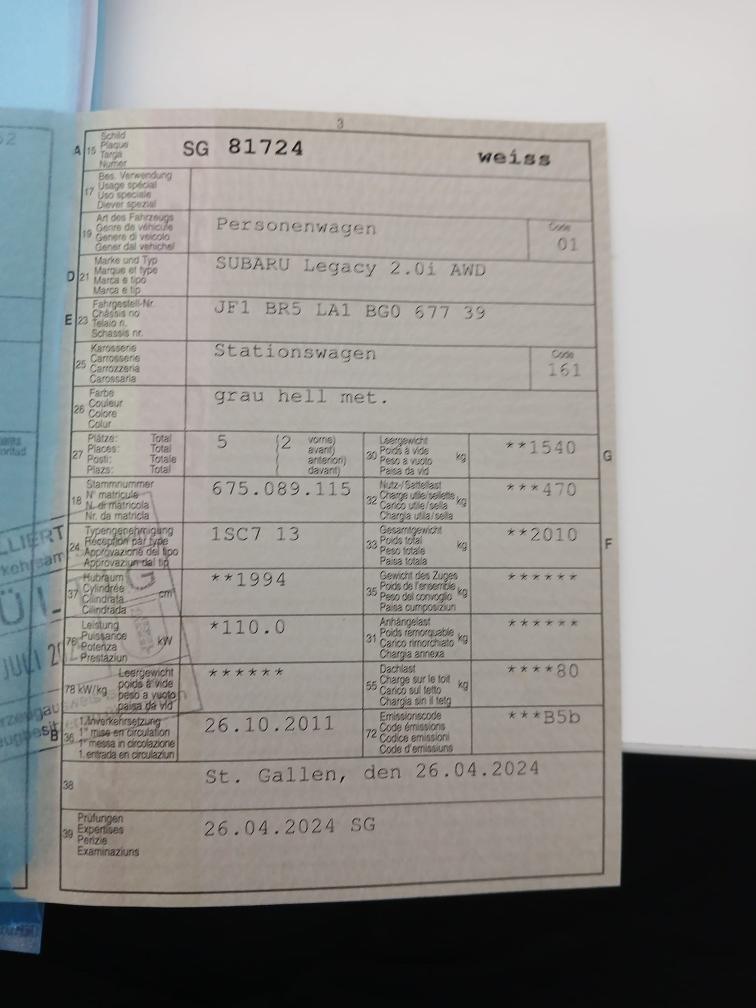 3
A 15 Schild
Plaque
Targa
Numer
SG 81724 weiss
17 Bes. Verwendung
Usage spécial
Uso speciale
Diever spezial
19 Art des Fahrzeugs
Genre de véhicule
Genere di veicolo
Gener dal vehichel
Personenwagen
Code
01
D 21 Marke und Typ
Marque et type
Marca e tipo
Marca e tip
SUBARU Legacy 2.0i AWD
E 23 Fahrgestell-Nr.
Châssis no
Telaio n.
Schassis nr.
JF1 BR5 LA1 BG0 677 39
25 Karosserie
Carrosserie
Carrozzeria
Carossaria
Stationswagen
Code
161
26 Farbe
Couleur
Colore
Colur
grau hell met.
27 Plätze: Total
Places: Total
Posti: Totale
Plazs: Total
5 (2 vorne)
avant)
anteriori)
( davant)
30 Leergewicht
Poids à vide
Peso a vuoto kg
Paisa da vid
**1540 G
18 Stammnummer
N° matricule
N. di matricola
Nr. da matricla
675.089.115
32 Nutz-/Sattellast
Charge utile/sellette kg
Carico utile/sella
Chargia utila/sella
***470
24 Typengenehmigung
Réception par type
Approvazione del tipo
Approvaziun dal tip
1SC7 13
33 Gesamtgewicht
Poids total
Peso totale kg
Paisa totala
**2010 F
37 Hubraum
Cylindrée cm³
Cilindrata
Cilindrada
**1994
35 Gewicht des Zuges
Poids de l'ensemble kg
Peso del convoglio
Paisa cumposiziun
******
76 Leistung
Puissance kW
Potenza
Prestaziun
*110.0
31 Anhängelast
Poids remorquable kg
Carico rimorchiato
Chargia annexa
******
78 kW/kg Leergewicht
poids à vide
peso a vuoto
paisa da vid
******
55 Dachlast
Charge sur le toit kg
Carico sul tetto
Chargia sin il tetg
****80
B 36 1. Inverkehrsetzung
1re mise en circulation
1a messa in circolazione
1. entrada en circulaziun
26.10.2011
72 Emissionscode
Code émissions
Codice emissioni
Code d'emissiuns
***B5b
38 St. Gallen, den 26.04.2024
39 Prüfungen
Expertises
Perizie
Examinaziuns
26.04.2024 SG